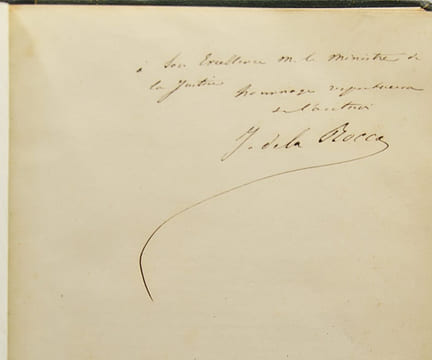 à Son Excellence M. le Ministre de
la Justice hommage respectueux
de l'auteur
J. de la Rocca